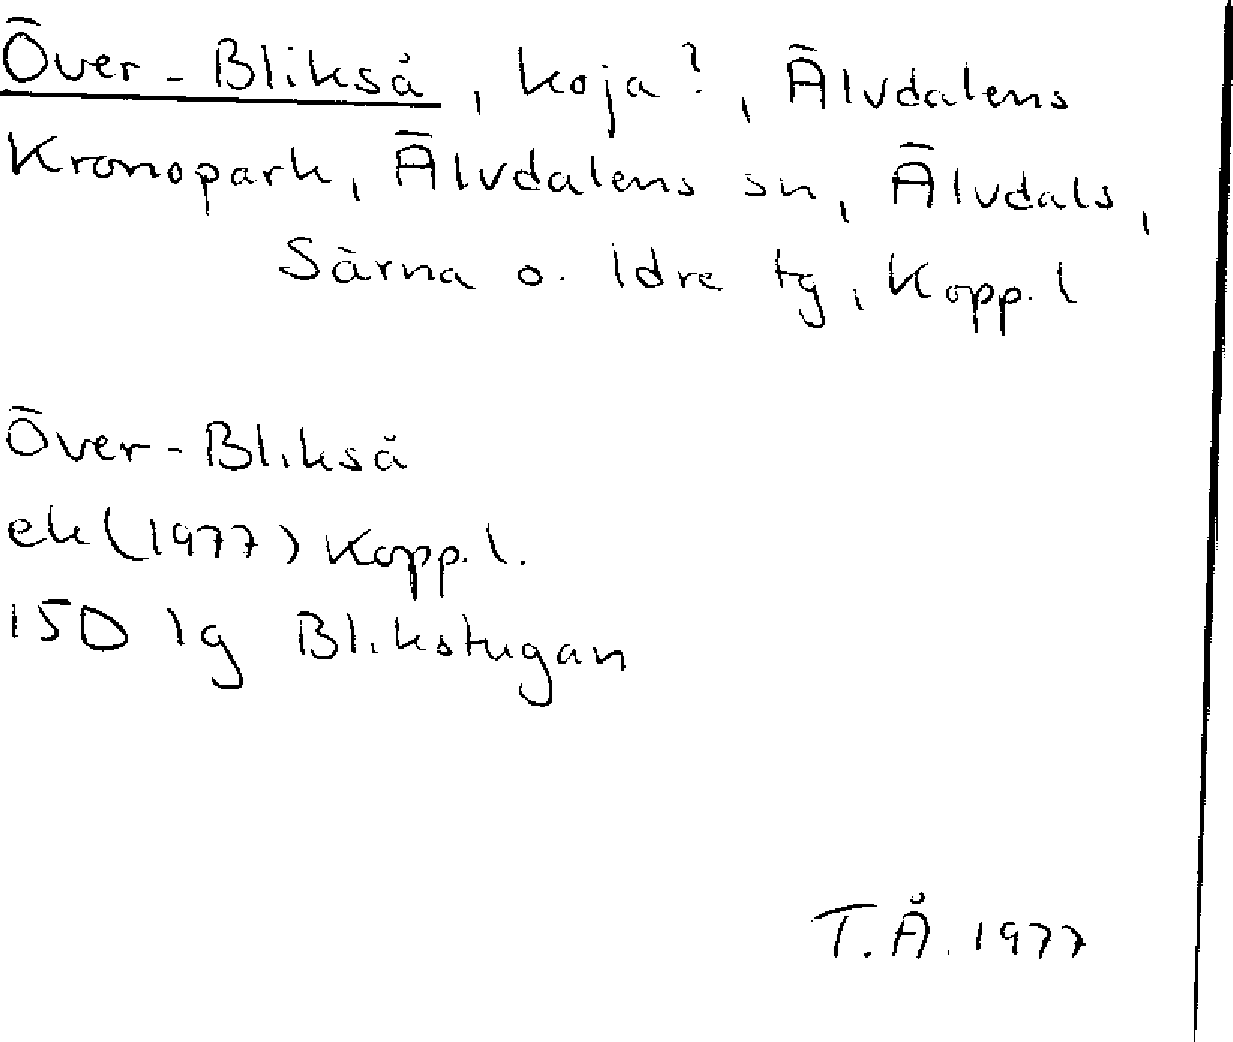 Över-Blikså, koja?, Älvdalens
Kronopark, Älvdalens sn, Älvdals,
Särna o. Idre tg, Kopp. l
Över-Blikså
ek (1977) Kopp. l.
150 lg Blikstugan
T.Å. 1977